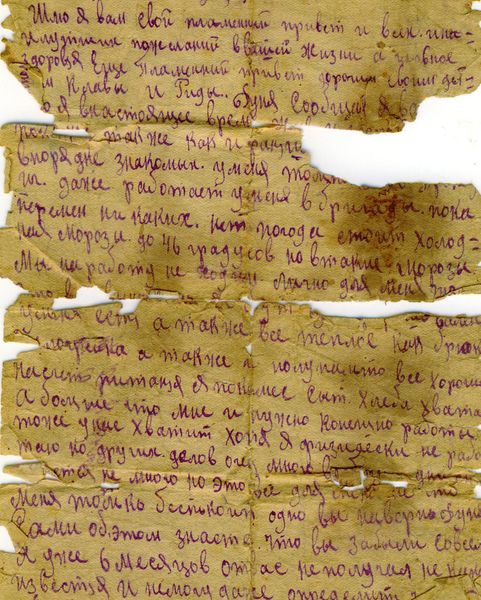 Шлю я вам свой пламенный привет и всяк. на=
илутших пожеланий в вашей жизни а главное
здоровя Еще Пламенный привет дорогим своим дет=
ям Клавы и Гиды. Дуня Сообщаю я ва
я внастоящее время
так же как и ранш
впорядке знакомых. у меня тольк
даже работает у меня в бригады. пока
перемен ни каких. нет погода стоит холод=
ная морозы. до 46 градусов но втакие. морозы
Мы на работу не ходим лично для меня это
у меня есть а так же все теплое как брюк
а так же и получаю все хорошо
насчет питаня я пока мест сыт. Хлеба хвата
а больше что мне и нужно конешно работы
тоже у нас хватит хотя я физически не рабо
таю но других. делов очен много в
не много но это все для меня не что
меня только беспокоит одно вы наверно Дуня
Сами об этом знаете что вы Забыли совсем
я уже 6 месяцов от вас не получал не каких
известия и немогу даже определить